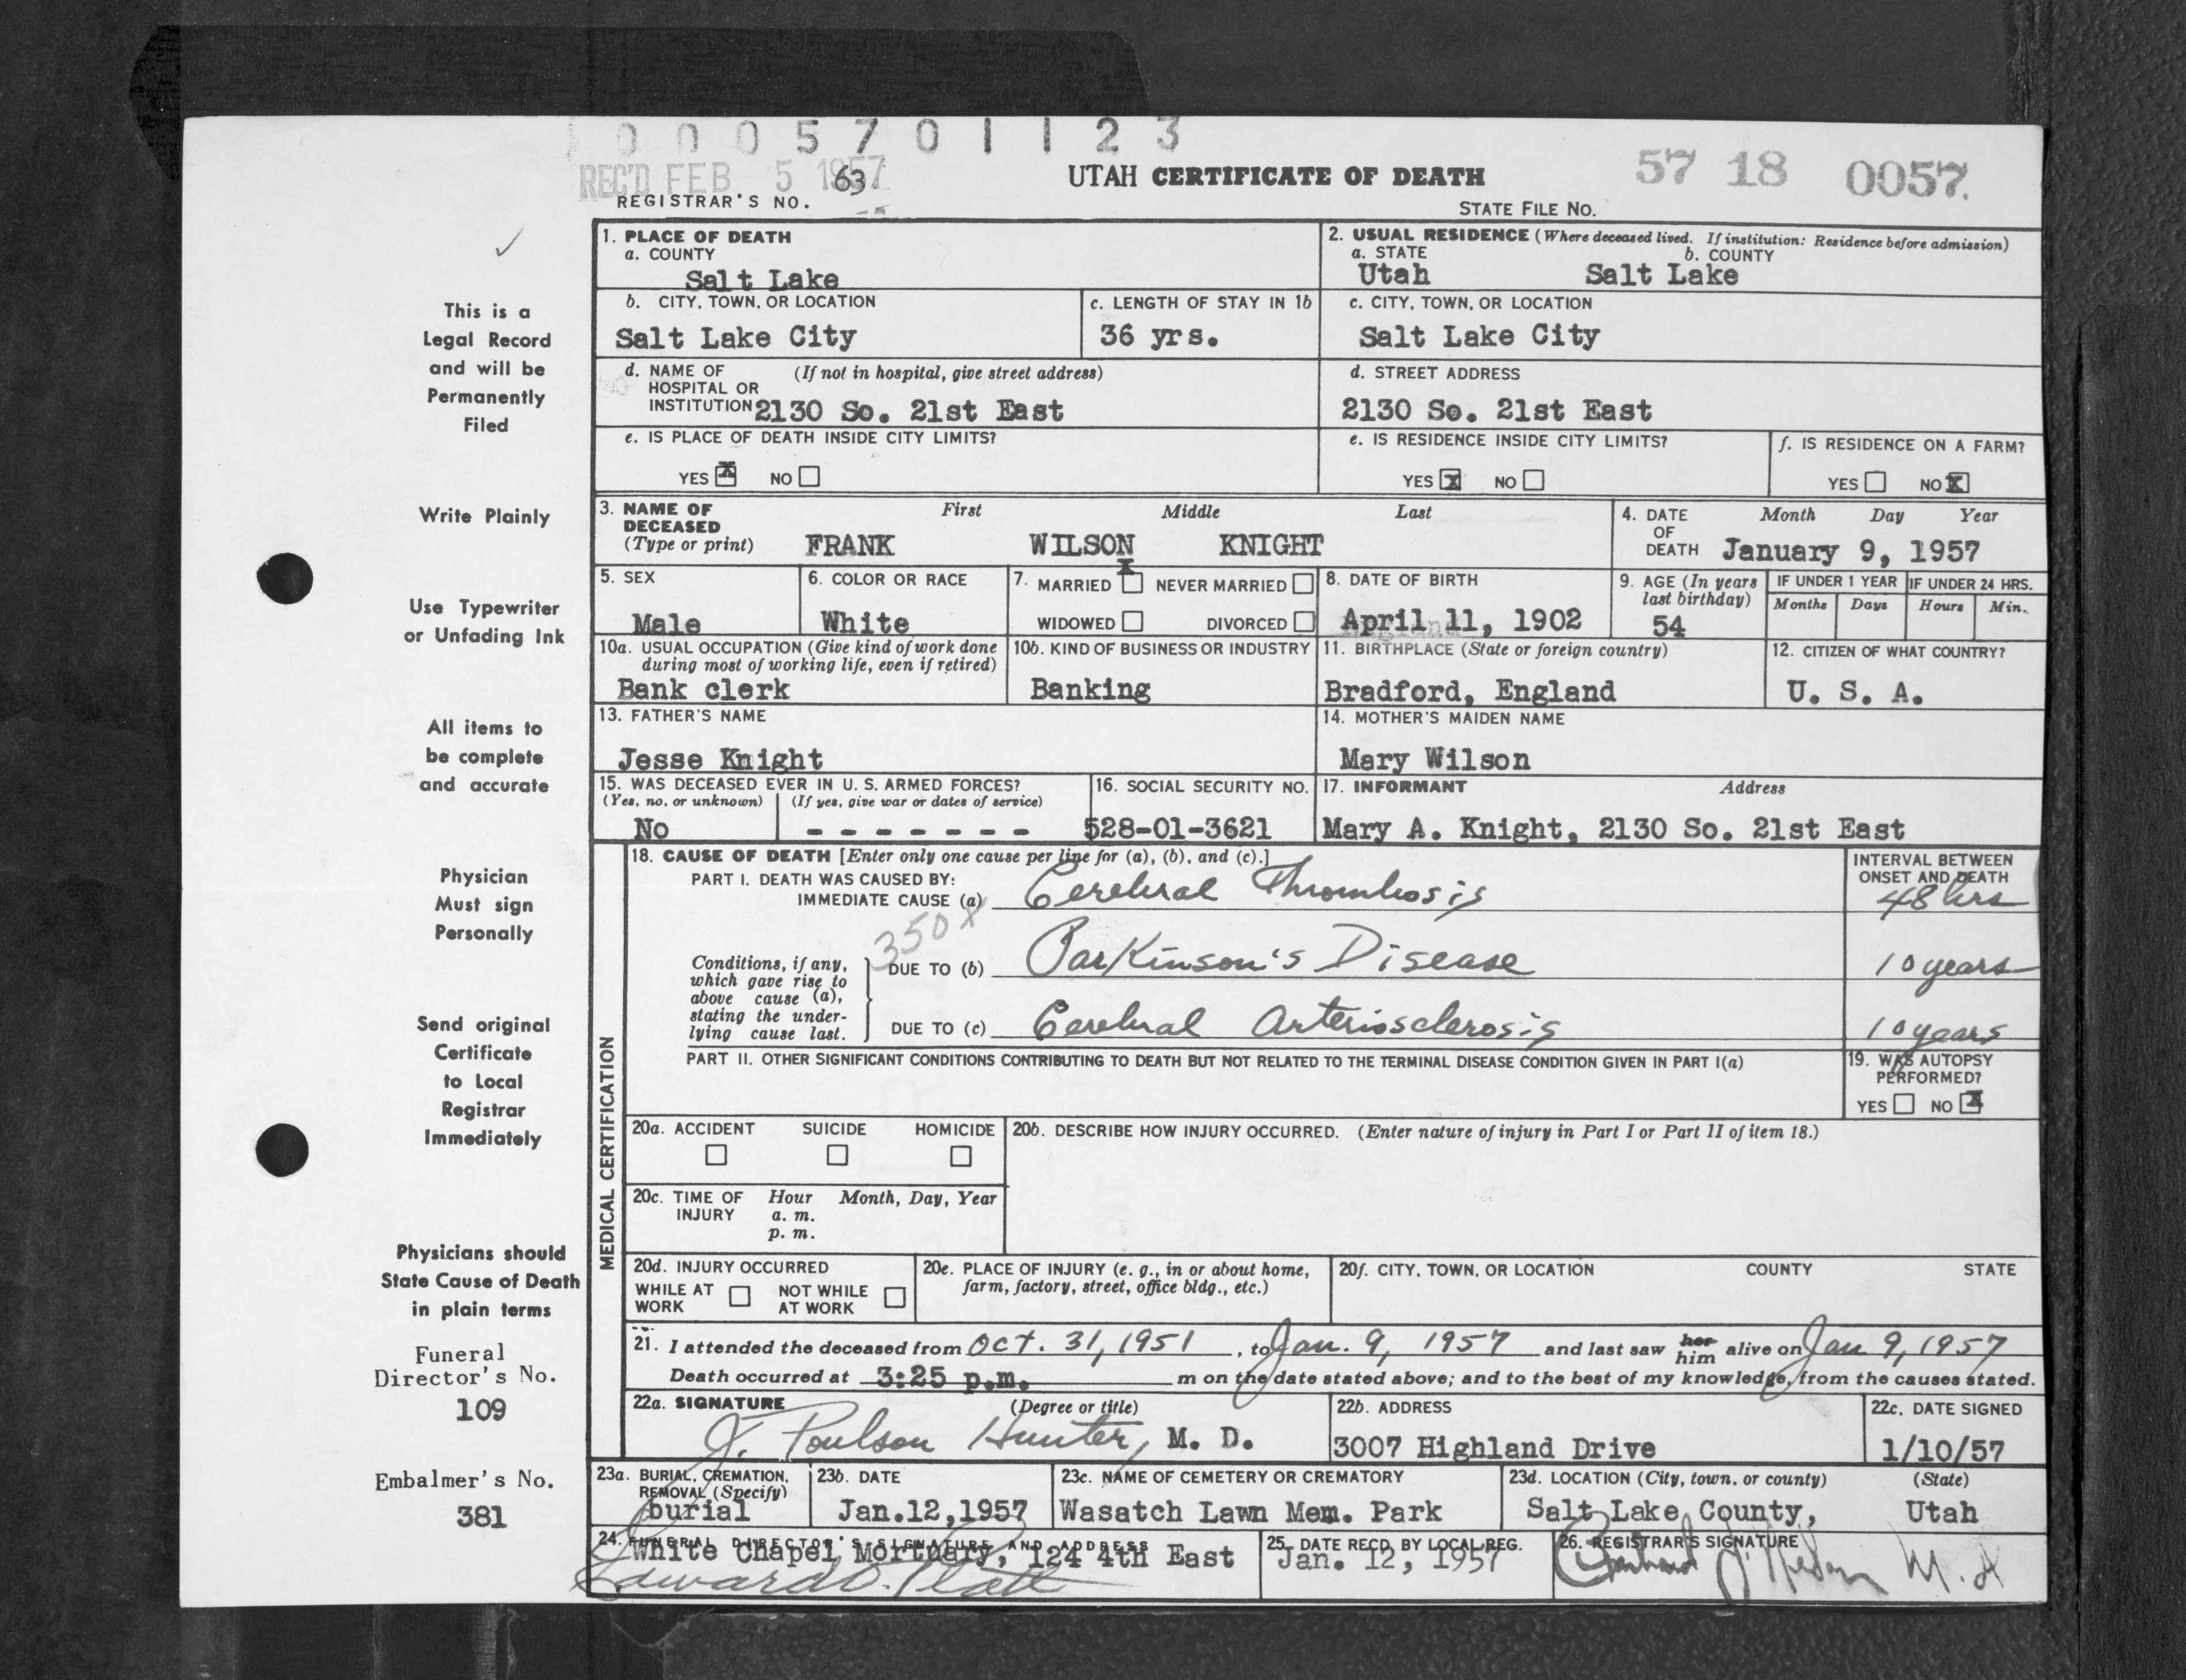 0005701123
REC'D FEB 5 1957
63
REGISTRAR'S NO.
UTAH CERTIFICATE OF DEATH
57 18 0057
STATE FILE NO.
This is a
Legal Record
and will be
Permanently
Filed
Write Plainly
Use Typewriter
or Unfading Ink
All items to
be complete
and accurate
Physician
Must sign
Personally
Send original
Certificate
to Local
Registrar
Immediately
Physicians should
State Cause of Death
in plain terms
Funeral
Director's No.
109
Embalmer's No.
381
1. PLACE OF DEATH
a. COUNTY
Salt Lake
2. USUAL RESIDENCE (Where deceased lived. If institution: Residence before admission)
a. STATE b. COUNTY
Utah Salt Lake
b. CITY, TOWN, OR LOCATION
Salt Lake City
c. LENGTH OF STAY IN 1b
36 yrs.
c. CITY, TOWN, OR LOCATION
Salt Lake City
d. NAME OF (If not in hospital, give street address)
HOSPITAL OR
INSTITUTION 2130 So. 21st East
d. STREET ADDRESS
2130 So. 21st East
e. IS PLACE OF DEATH INSIDE CITY LIMITS?
YES X NO
e. IS RESIDENCE INSIDE CITY LIMITS?
YES X NO
f. IS RESIDENCE ON A FARM?
YES NO X
3. NAME OF First Middle Last
DECEASED
(Type or print) FRANK WILSON KNIGHT
4. DATE Month Day Year
OF
DEATH January 9, 1957
5. SEX
Male
6. COLOR OR RACE
White
7. MARRIED X NEVER MARRIED
WIDOWED DIVORCED
8. DATE OF BIRTH
April 11, 1902
9. AGE (In years
last birthday)
54
IF UNDER 1 YEAR IF UNDER 24 HRS.
Months Days Hours Min.
10a. USUAL OCCUPATION (Give kind of work done
during most of working life, even if retired)
Bank clerk
10b. KIND OF BUSINESS OR INDUSTRY
Banking
11. BIRTHPLACE (State or foreign country)
Bradford, England
12. CITIZEN OF WHAT COUNTRY?
U. S. A.
13. FATHER'S NAME
Jesse Knight
14. MOTHER'S MAIDEN NAME
Mary Wilson
15. WAS DECEASED EVER IN U. S. ARMED FORCES?
(Yes, no, or unknown) (If yes, give war or dates of service)
No - - - - - - -
16. SOCIAL SECURITY NO.
528-01-3621
17. INFORMANT Address
Mary A. Knight, 2130 So. 21st East
MEDICAL CERTIFICATION
18. CAUSE OF DEATH [Enter only one cause per line for (a), (b), and (c).]
INTERVAL BETWEEN
ONSET AND DEATH
PART I. DEATH WAS CAUSED BY:
IMMEDIATE CAUSE (a) Cerebral Thrombosis 48 hrs
350 X
Conditions, if any,
which gave rise to
above cause (a),
stating the under-
lying cause last.
DUE TO (b) Parkinson's Disease 10 years
DUE TO (c) Cerebral Arteriosclerosis 10 years
PART II. OTHER SIGNIFICANT CONDITIONS CONTRIBUTING TO DEATH BUT NOT RELATED TO THE TERMINAL DISEASE CONDITION GIVEN IN PART I(a)
19. WAS AUTOPSY
PERFORMED?
YES NO X
20a. ACCIDENT SUICIDE HOMICIDE
20b. DESCRIBE HOW INJURY OCCURRED. (Enter nature of injury in Part I or Part II of item 18.)
20c. TIME OF Hour Month, Day, Year
INJURY a. m.
p. m.
20d. INJURY OCCURRED
WHILE AT NOT WHILE
WORK AT WORK
20e. PLACE OF INJURY (e. g., in or about home,
farm, factory, street, office bldg., etc.)
20f. CITY, TOWN, OR LOCATION COUNTY STATE
21. I attended the deceased from Oct. 31, 1951, to Jan. 9, 1957 and last saw her him alive on Jan 9, 1957
Death occurred at 3:25 p.m. m on the date stated above; and to the best of my knowledge, from the causes stated.
22a. SIGNATURE (Degree or title)
J. Poulson Hunter, M. D.
22b. ADDRESS
3007 Highland Drive
22c. DATE SIGNED
1/10/57
23a. BURIAL, CREMATION,
REMOVAL (Specify)
burial
23b. DATE
Jan.12,1957
23c. NAME OF CEMETERY OR CREMATORY
Wasatch Lawn Mem. Park
23d. LOCATION (City, town, or county) (State)
Salt Lake County, Utah
24. FUNERAL DIRECTOR'S SIGNATURE AND ADDRESS
White Chapel Mortuary, 124 4th East
25. DATE RECD BY LOCAL REG.
Jan. 12, 1957
26. REGISTRAR'S SIGNATURE